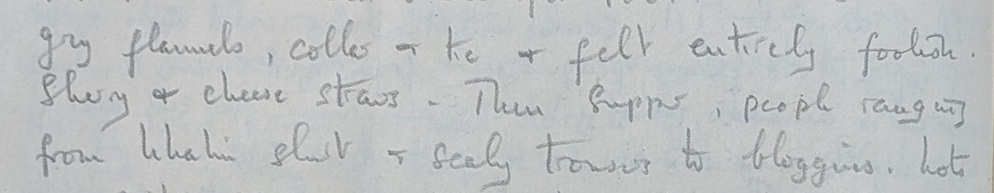 grey flannels, collar & tie & felt entirely foolish.
Sherry & cheese straws. Then supper, people ranging
from khaki shirt & scaly trousers to